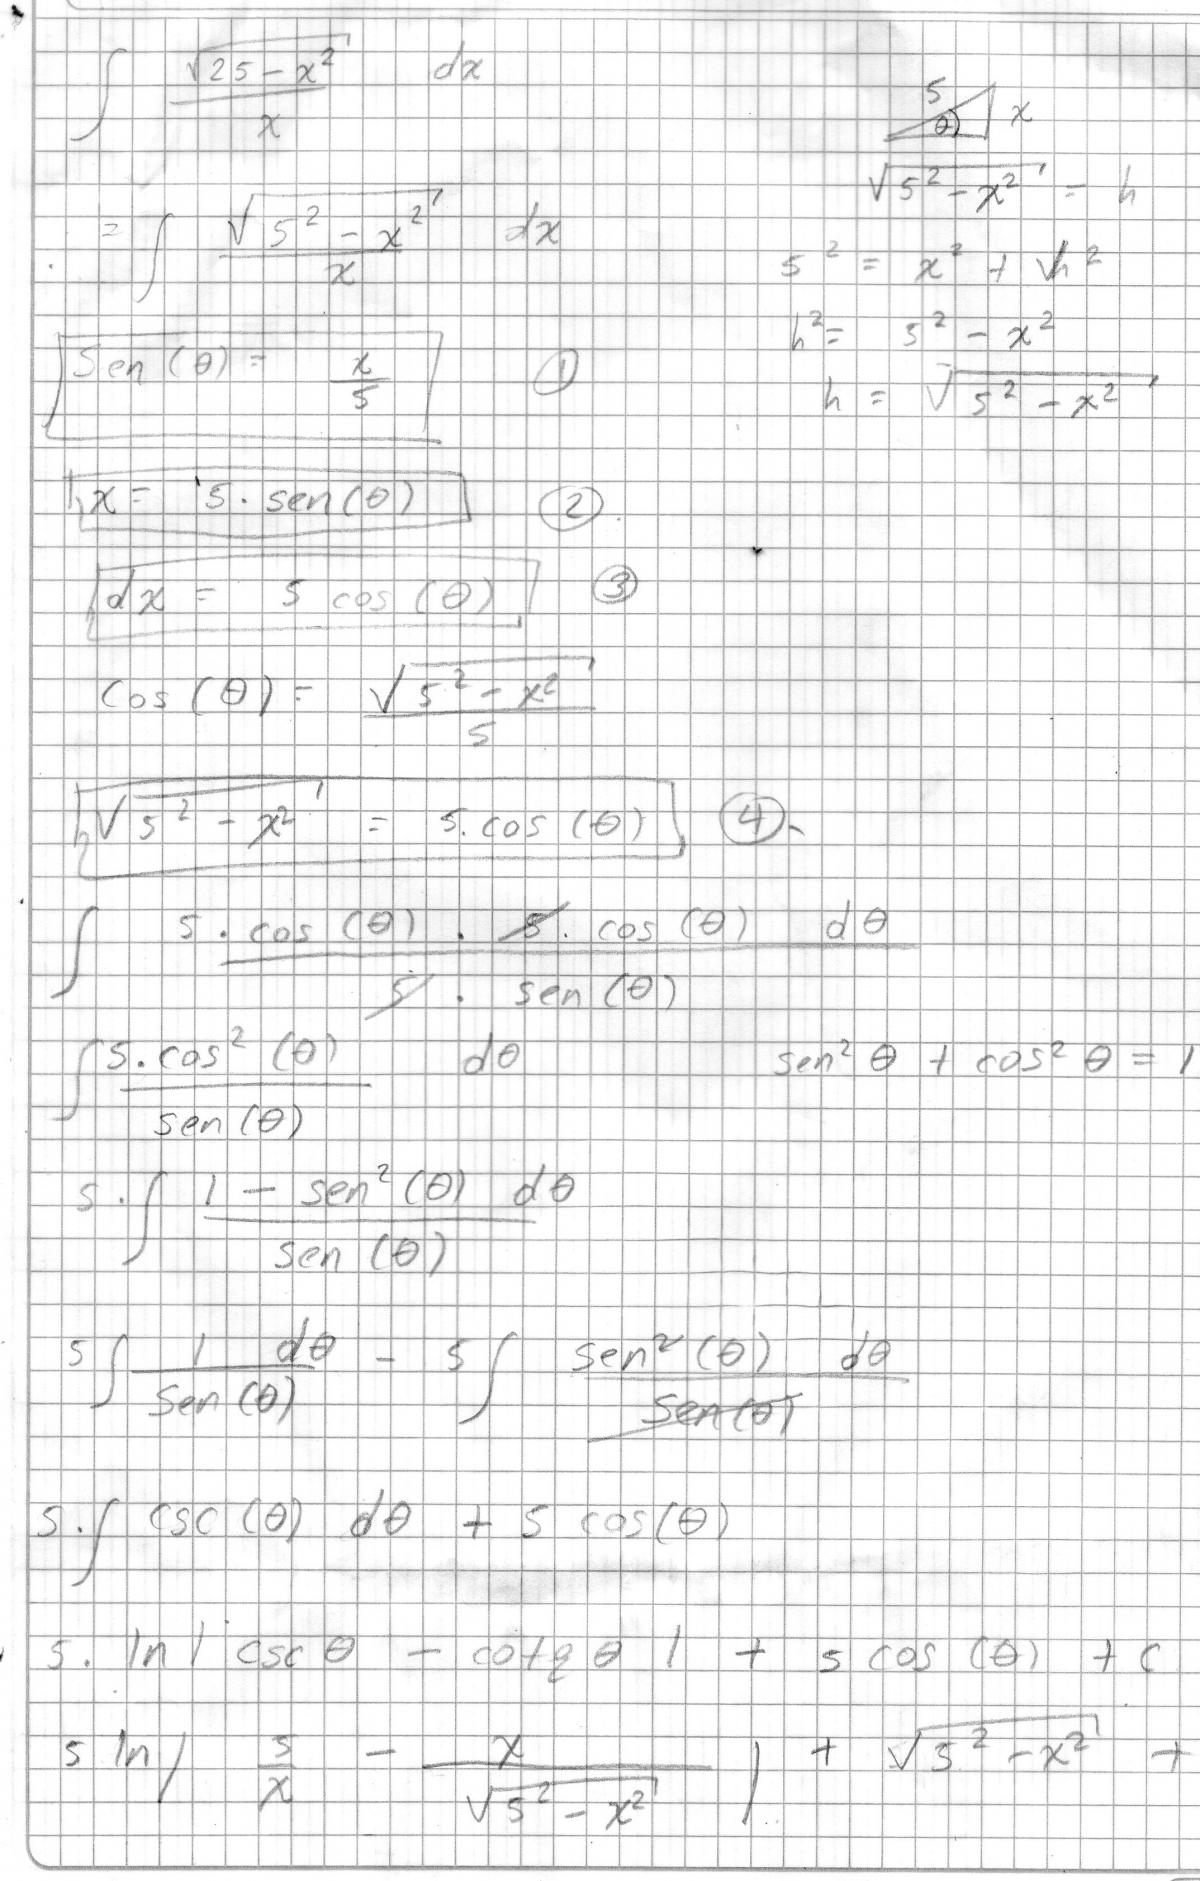 ∫ √(25 - x²) / x dx
5 θ x
√(5² - x²) = h
= ∫ √(5² - x²) / x dx
5² = x² + h²
h² = 5² - x²
h = √(5² - x²)
Sen (θ) = x/5 ①
x = 5 · sen(θ) ②
dx = 5 cos (θ) ③
cos (θ) = √(5² - x²) / 5
√(5² - x²) = 5 · cos (θ) ④
∫ 5 · cos (θ) · 5 · cos (θ) dθ / 5 · sen (θ)
∫ 5 · cos² (θ) / sen (θ) dθ
sen² θ + cos² θ = 1
5 · ∫ 1 - sen² (θ) dθ / sen (θ)
5 ∫ 1 dθ / Sen (θ) - 5 ∫ sen² (θ) dθ / Sen (θ)
5 · ∫ csc (θ) dθ + 5 cos(θ)
5 · ln | csc θ - cotg θ | + 5 cos (θ) + c
5 ln | 5/x - x / √(5² - x²) | + √(5² - x²) +